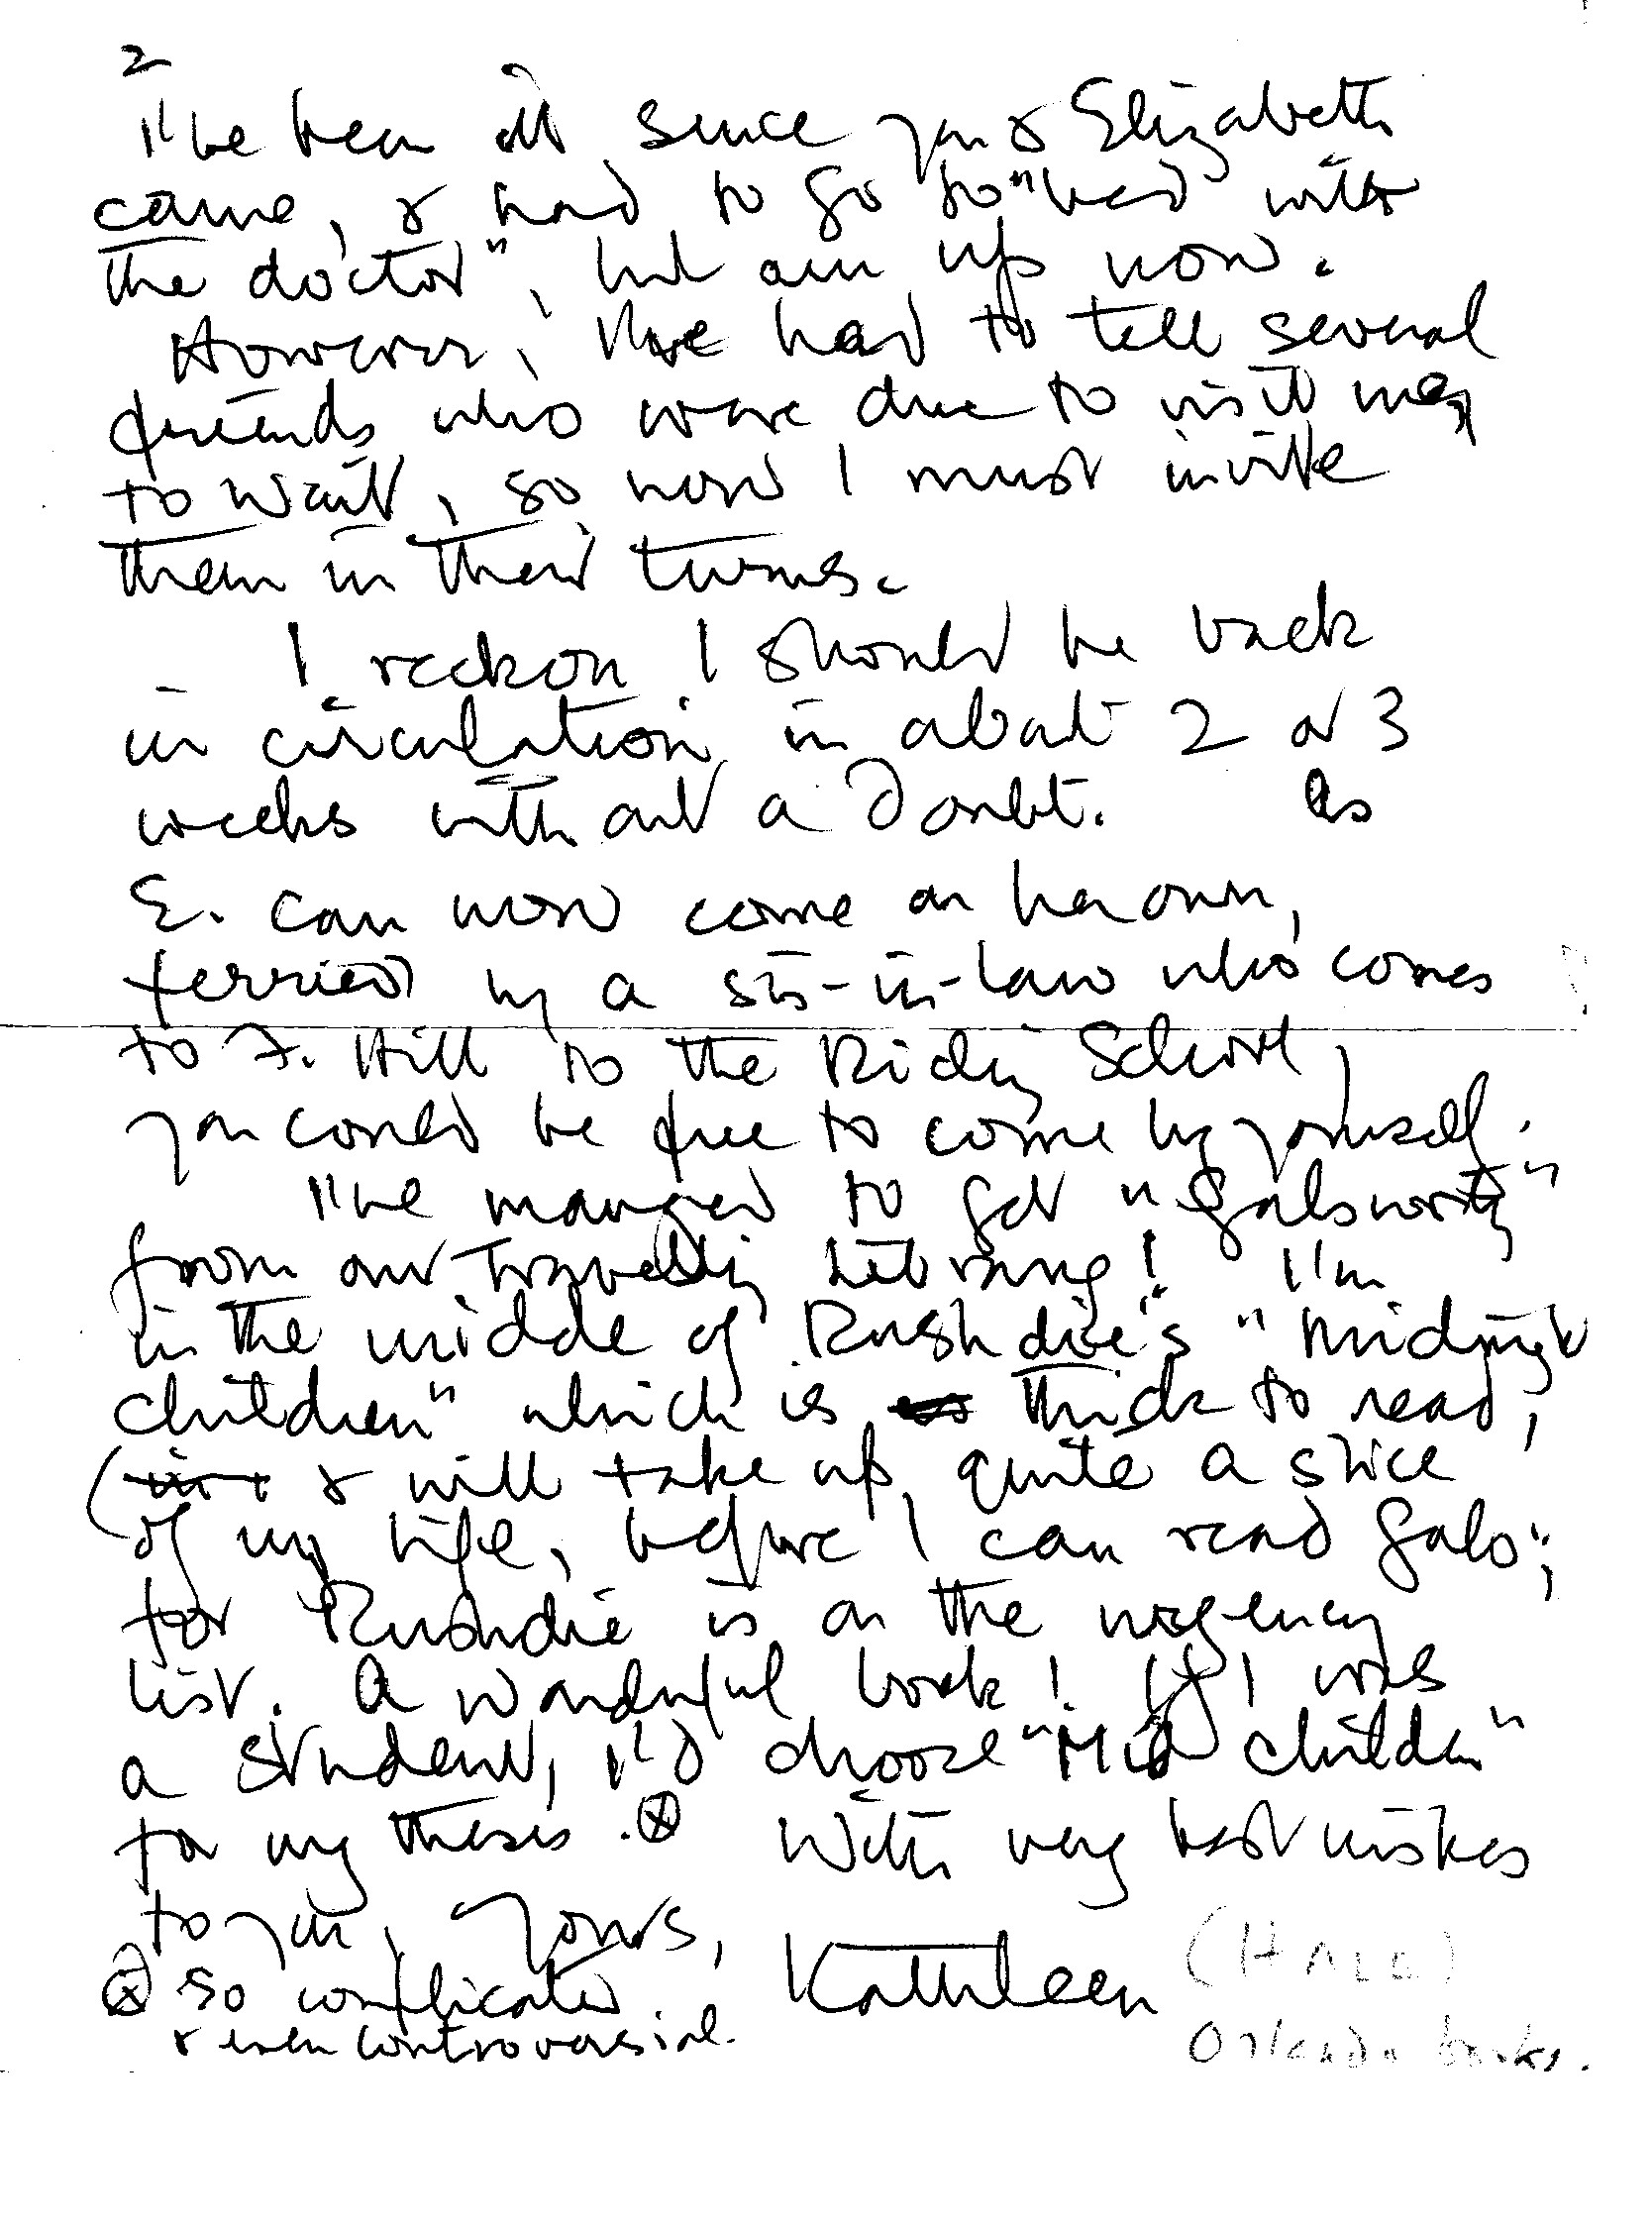 2
I've been ill since you & Elizabeth
came, & had to go to "bed with
the doctor", but am up now.
However, I've had to tell several
friends who were due to visit me,
to wait, so now I must invite
them in their turns.
I reckon I should be back
in circulation in about 2 or 3
weeks without a doubt. As
E. can now come on her own,
ferried by a sis-in-law who comes
to F. Hill to the Riding School,
you could be free to come by yourself.
I've managed to get "Galsworthy"
from our Travelling Library! I'm
in the middle of Rushdie's "Midnight
Children" which is thick to read,
( & will take up quite a slice
of my life, before I can read Gals:,
for Rushdie is on the urgency
list. A wonderful book! If I was
a student, I'd choose "Mid Children"
for my thesis. ⊗ With very best wishes
to you, Yours,
⊗ so complicated Kathleen (HALE)
& even controversial. Orlando books.